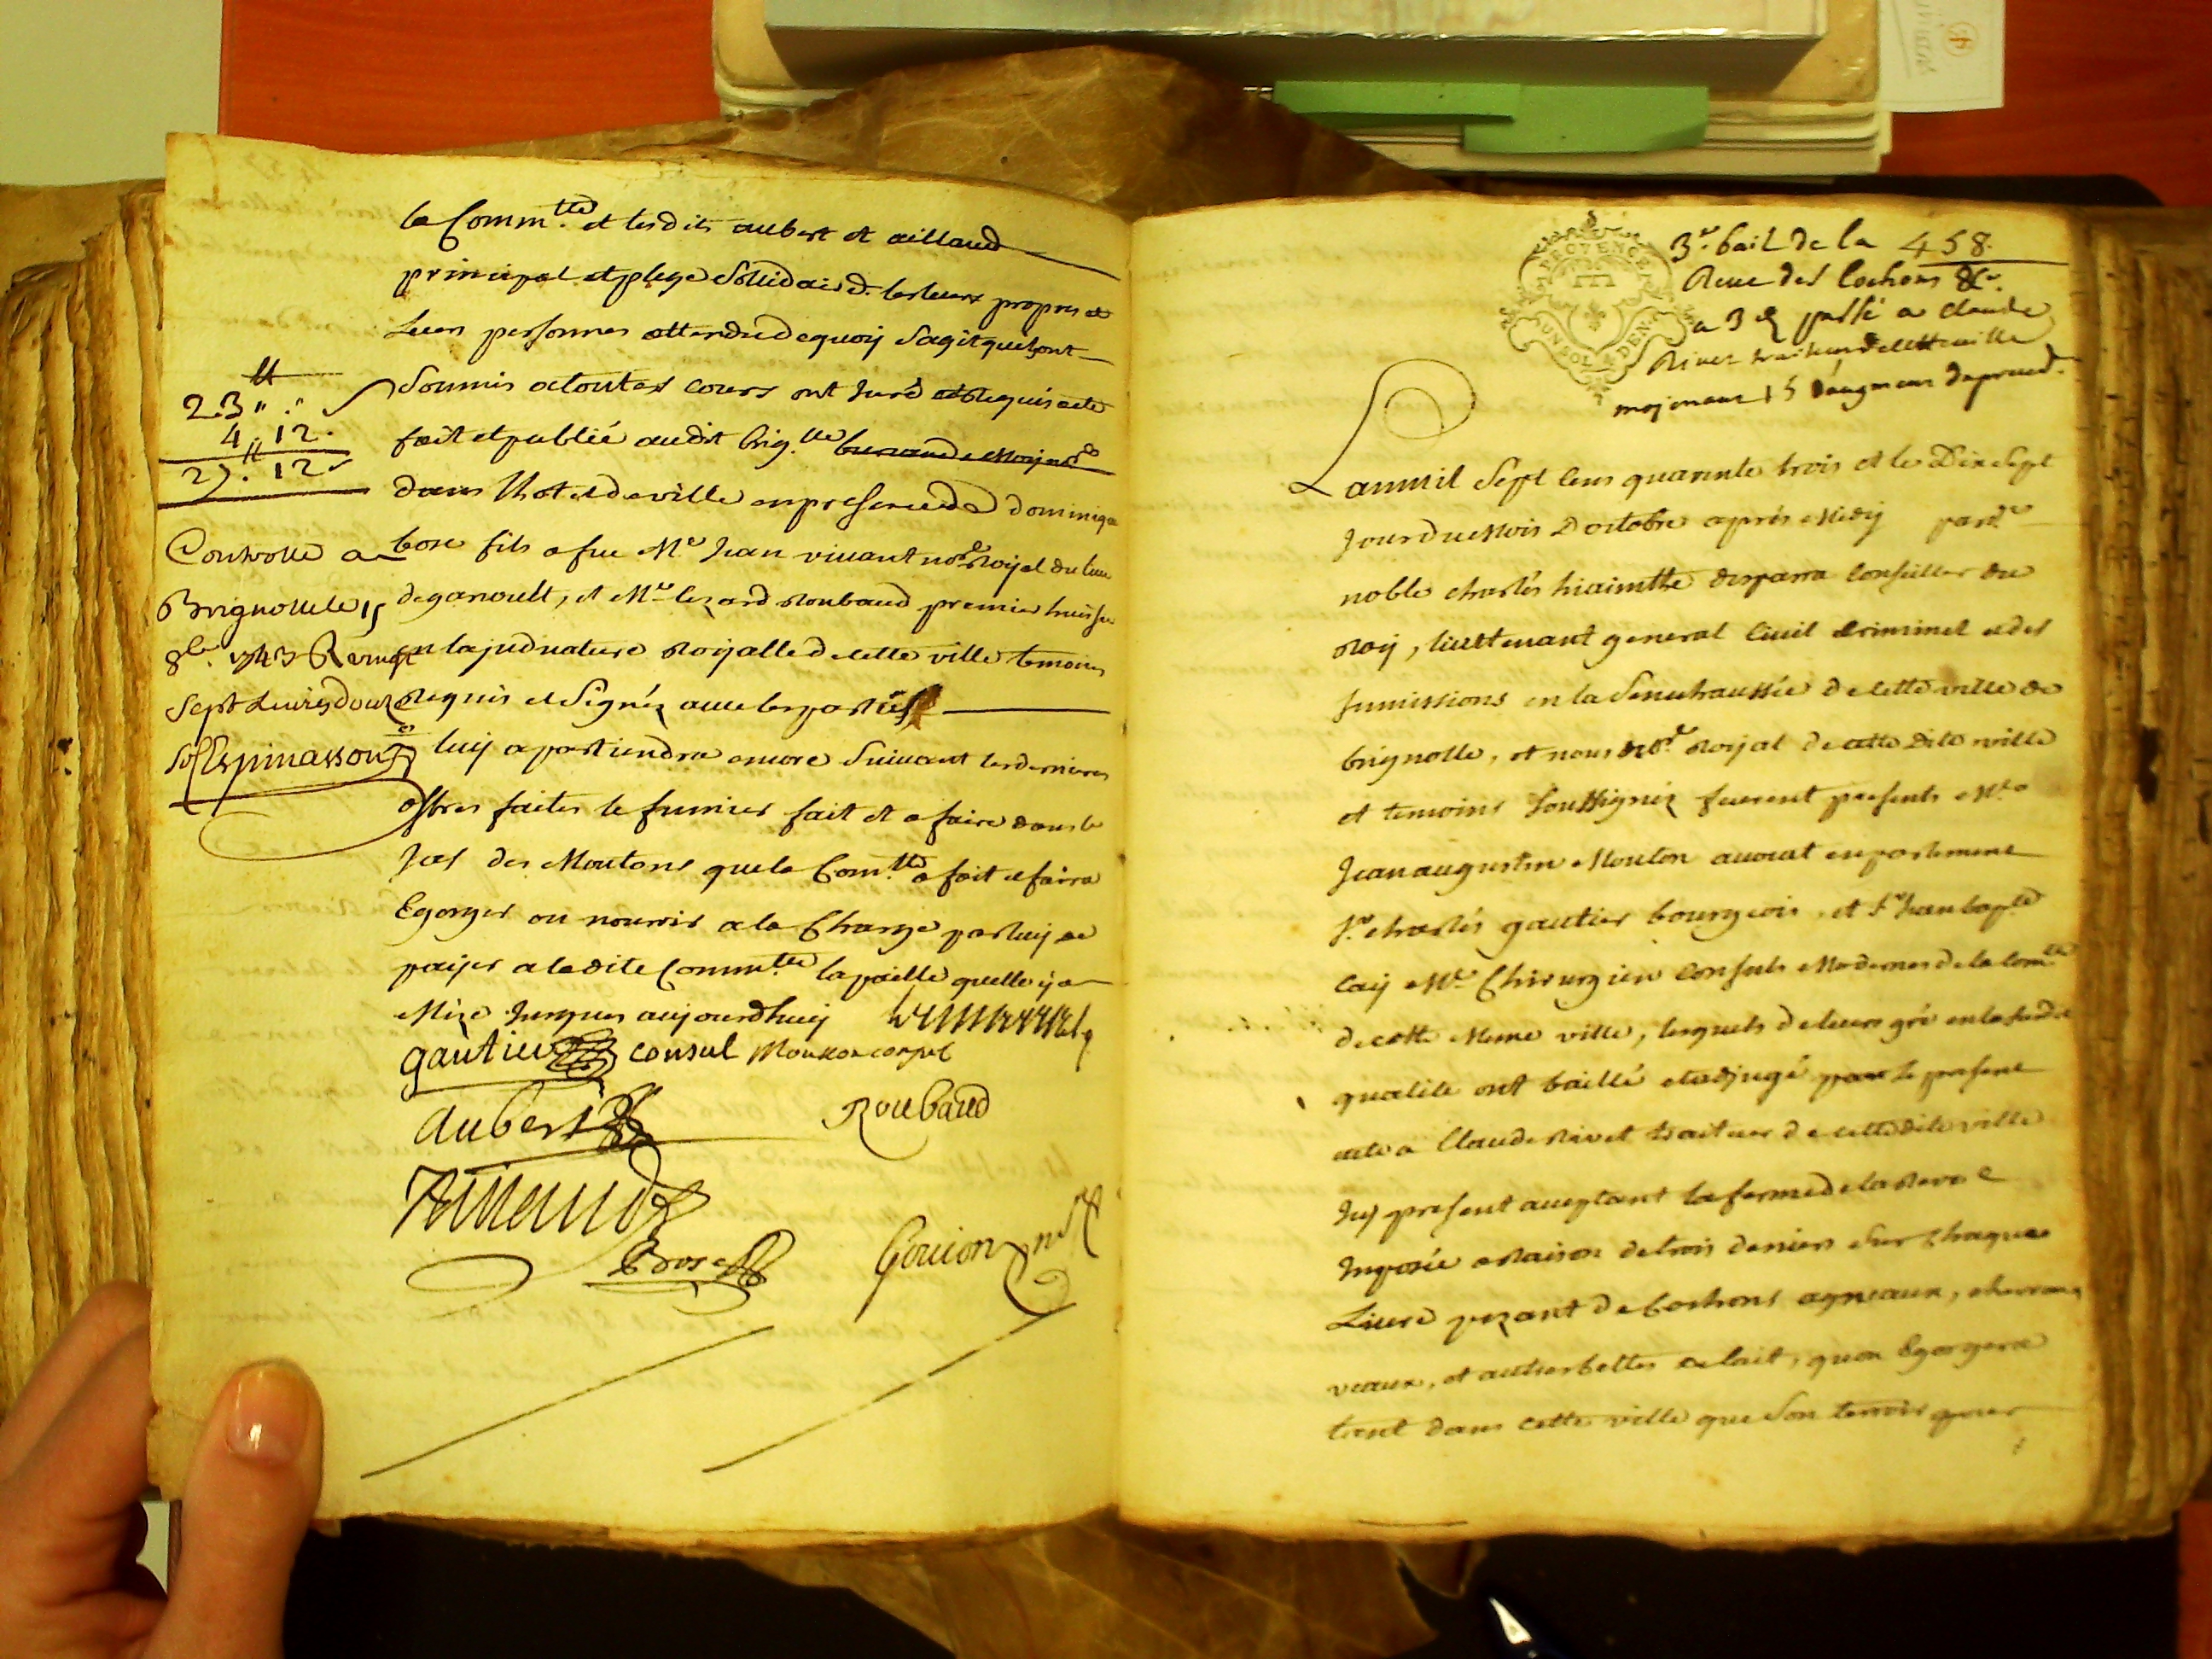 la Comm.tté et lesdits aubert et aillaud
principal et plege sollidaire les leurs propres et
leurs personnes attendu de quoy s'agit quil ont
soumis a toutes cours ont juré et requis acte
fait et publié audit brig.lle
dans l'hotel de ville en presence de dominique
bose fils a feu M.e Jean vivant no.re royal du lieu
de garoult, et M.e lezard Roubaud premier huissier
en la judicature royalle de cette ville temoins
requis et signéz avec les parties
luy apartiendra encore suivant les dernieres
offres faites le fumier fait et a faire dans le
jas des Moutons que la Com.tté a fait et faira
Egorger ou nourrir a la Charge par luy de
payer a ladite Comm.tté la paille quelle y a
Mize jusques aujourdhuy
gautier consul Mouton consul
aubert Roubaud
Aillaud
Bose Goujon no.re
23 " "
4 " 12
27 . 12
Controllé a
Brignolle le 15
8bre 1743 R vingt
sept livres douze
s. Espinasson
PROVENCE
UN SOL 4 DEN.
3.e bail de la 458.
Reve des Cochons &c.
a 3 d passé a claude
Rivet traiteur de cette ville
L'an mil sept cens quarante trois et le Dix sept
jour du Mois D'octobre aprés Midy pard.t
noble charlés hiainthe desparra Conseiller du
roy, lieutenant general Civil Criminel et des
sumissions en la Senechaussée de cette ville de
brignolle, et nous no.re royal de cette dite ville
et temoins soussignéz feurent presents M.e
Jean augustin Mouton avocat en parlement
s.r charlés gautier bourgeois, et s.r Jean bap.te
Caij M.e Chirurgien Consuls Modernes de la Com.té
de cette Meme ville, lesquels de leurs gré en la susdite
qualité ont baillé et adjugé par le present
acte a Claude Rivet traiteur de cette dite ville
Icy present aceptant la ferme de la Reve
Imposée a raison de trois deniers sur Chaque
Livre pezant de Cochons agneaux, chevraux
veaux, et autres bettes de lait, quon Egorgera
tant dans cette ville que son terroir pour